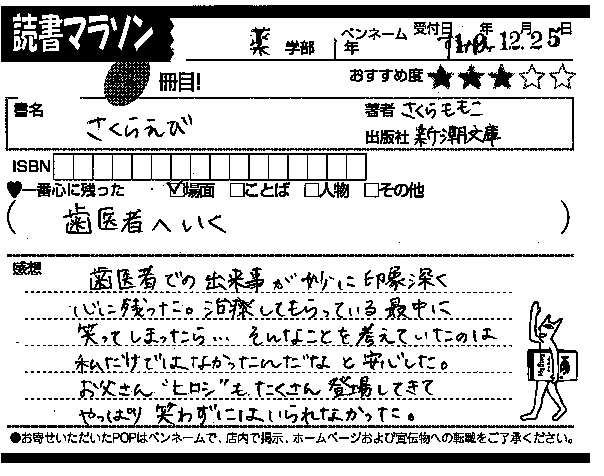 読書マラソン
薬 学部 年 ペンネーム 受付日 年12月25日
冊目!
おすすめ度 ★★★☆☆
書名 さくらえび
著者 さくらももこ
出版社 新潮文庫
ISBN
♥一番心に残った ☑場面 □ことば □人物 □その他
( 歯医者へいく )
感想
歯医者での出来事が妙に印象深く
心に残った。治療してもらっている最中に
笑ってしまったら… そんなことを考えていたのは
私だけではなかったんだな と安心した。
お父さん"ヒロシ"もたくさん登場してきて
やっぱり笑わずにはいられなかった。
●お寄せいただいたPOPはペンネームで、店内で掲示、ホームページおよび宣伝物への転載をご了承ください。